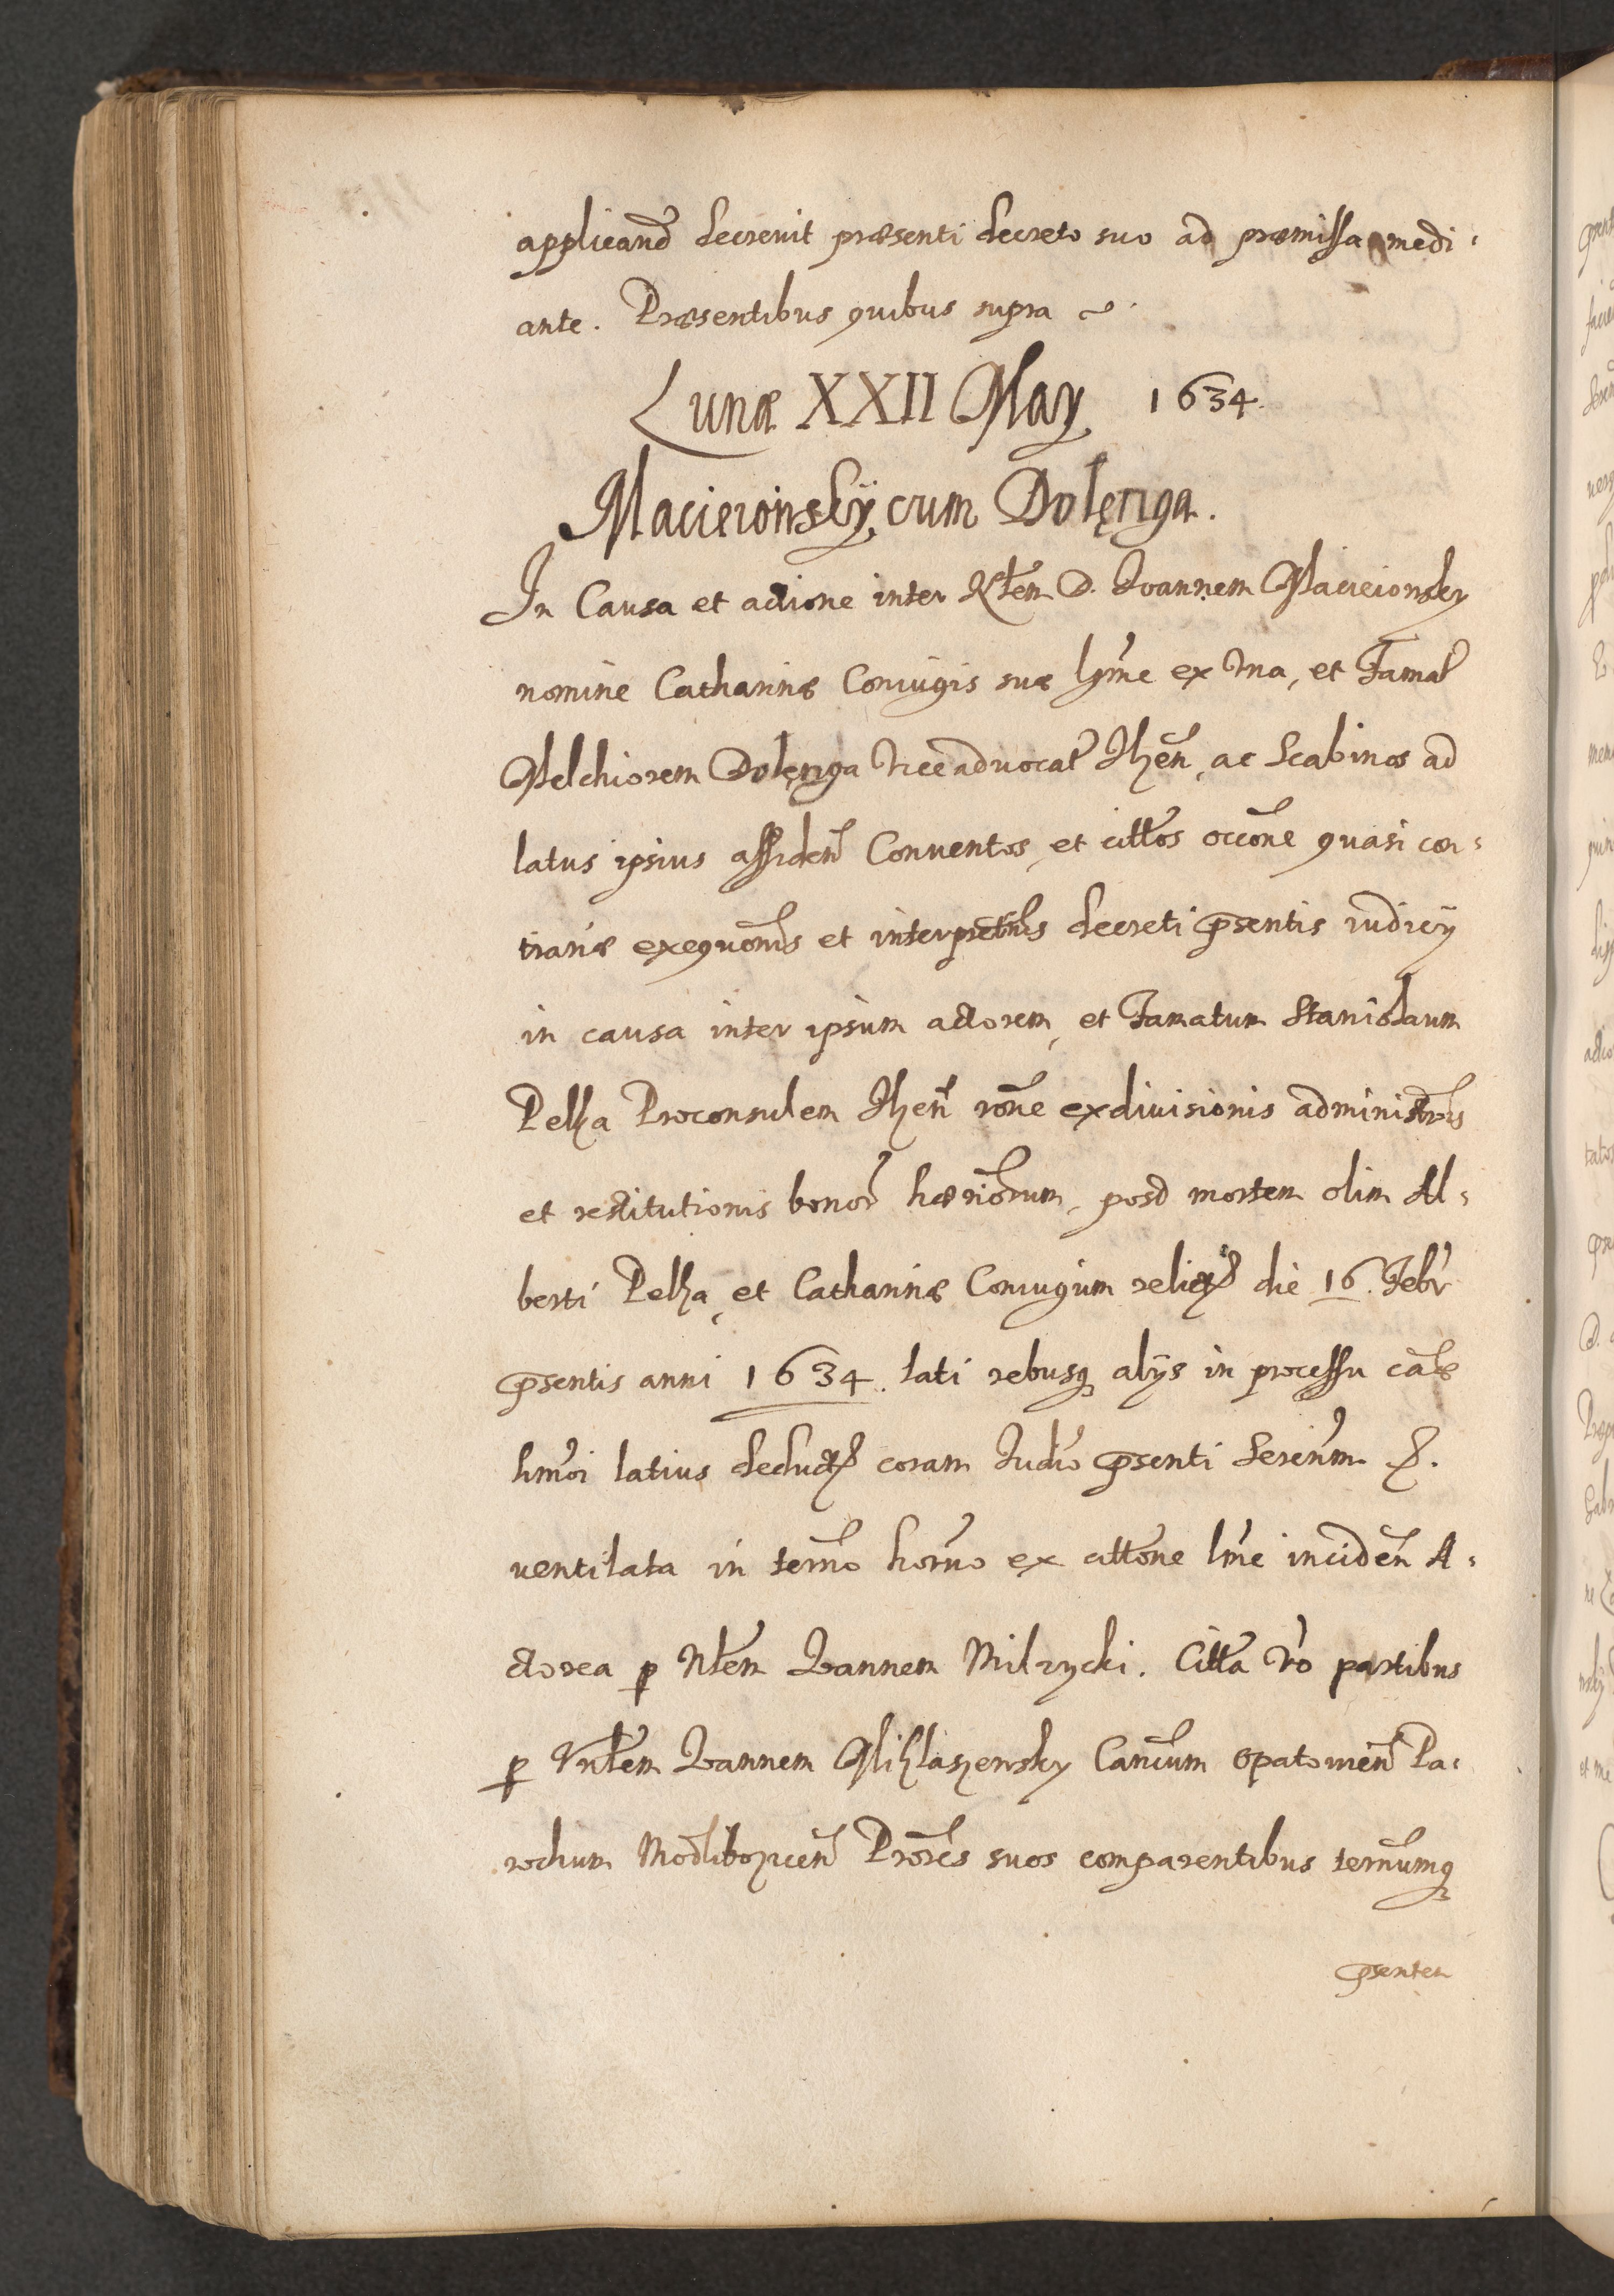 applicand decrevit præsenti decreto suo ad præmissa medi-
ante. Præsentibus quibus supra
Lunæ XXII May 1634.
Macieiowsky cum Dolęnga.
In Causa et actione inter Nlem D. Joannem Macieiowsky
nomine Catharinæ Coniugis suæ lgme ex Vna, et Famat
Melchiorem Dolęnga Viceadvocat Ilzen, ac Scabinos ad
latus ipsius assiden Conventos, et cittos occone quasi con-
trariæ exequonis et interpretnis decreti pnsentis iudicy
in causa inter ipsum actorem, et Famatum Stanislaum
Pelka Proconsulem Ilzen rone exdivisionis administronis
et restitutionis bonor hæriorum, post mortem olim Al-
berti Pelka, et Catharinæ Coniugum relict die 16. Febr
pnsentis anni 1634. lati rebusq alijs in processu caæ
hmoi latius deduct coram Judio pnsenti Serenm &.
ventilata in termo horno ex cittone lme inciden A-
ctorea p Nlem Joannem Milzycki. Citta vo partibus
p Vnlem Joannem Miklaszewsky Cancum Opatovien Pa-
rochum Modliborzicen Prores suos comparentibus termumq
pnsentem